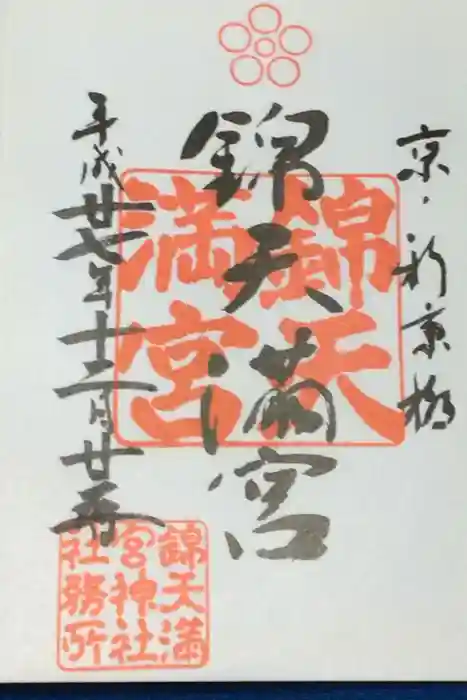 京・新京極
錦天満宮
錦天
満宮
平成廿七年十二月廿
錦天満
宮神社
社務所